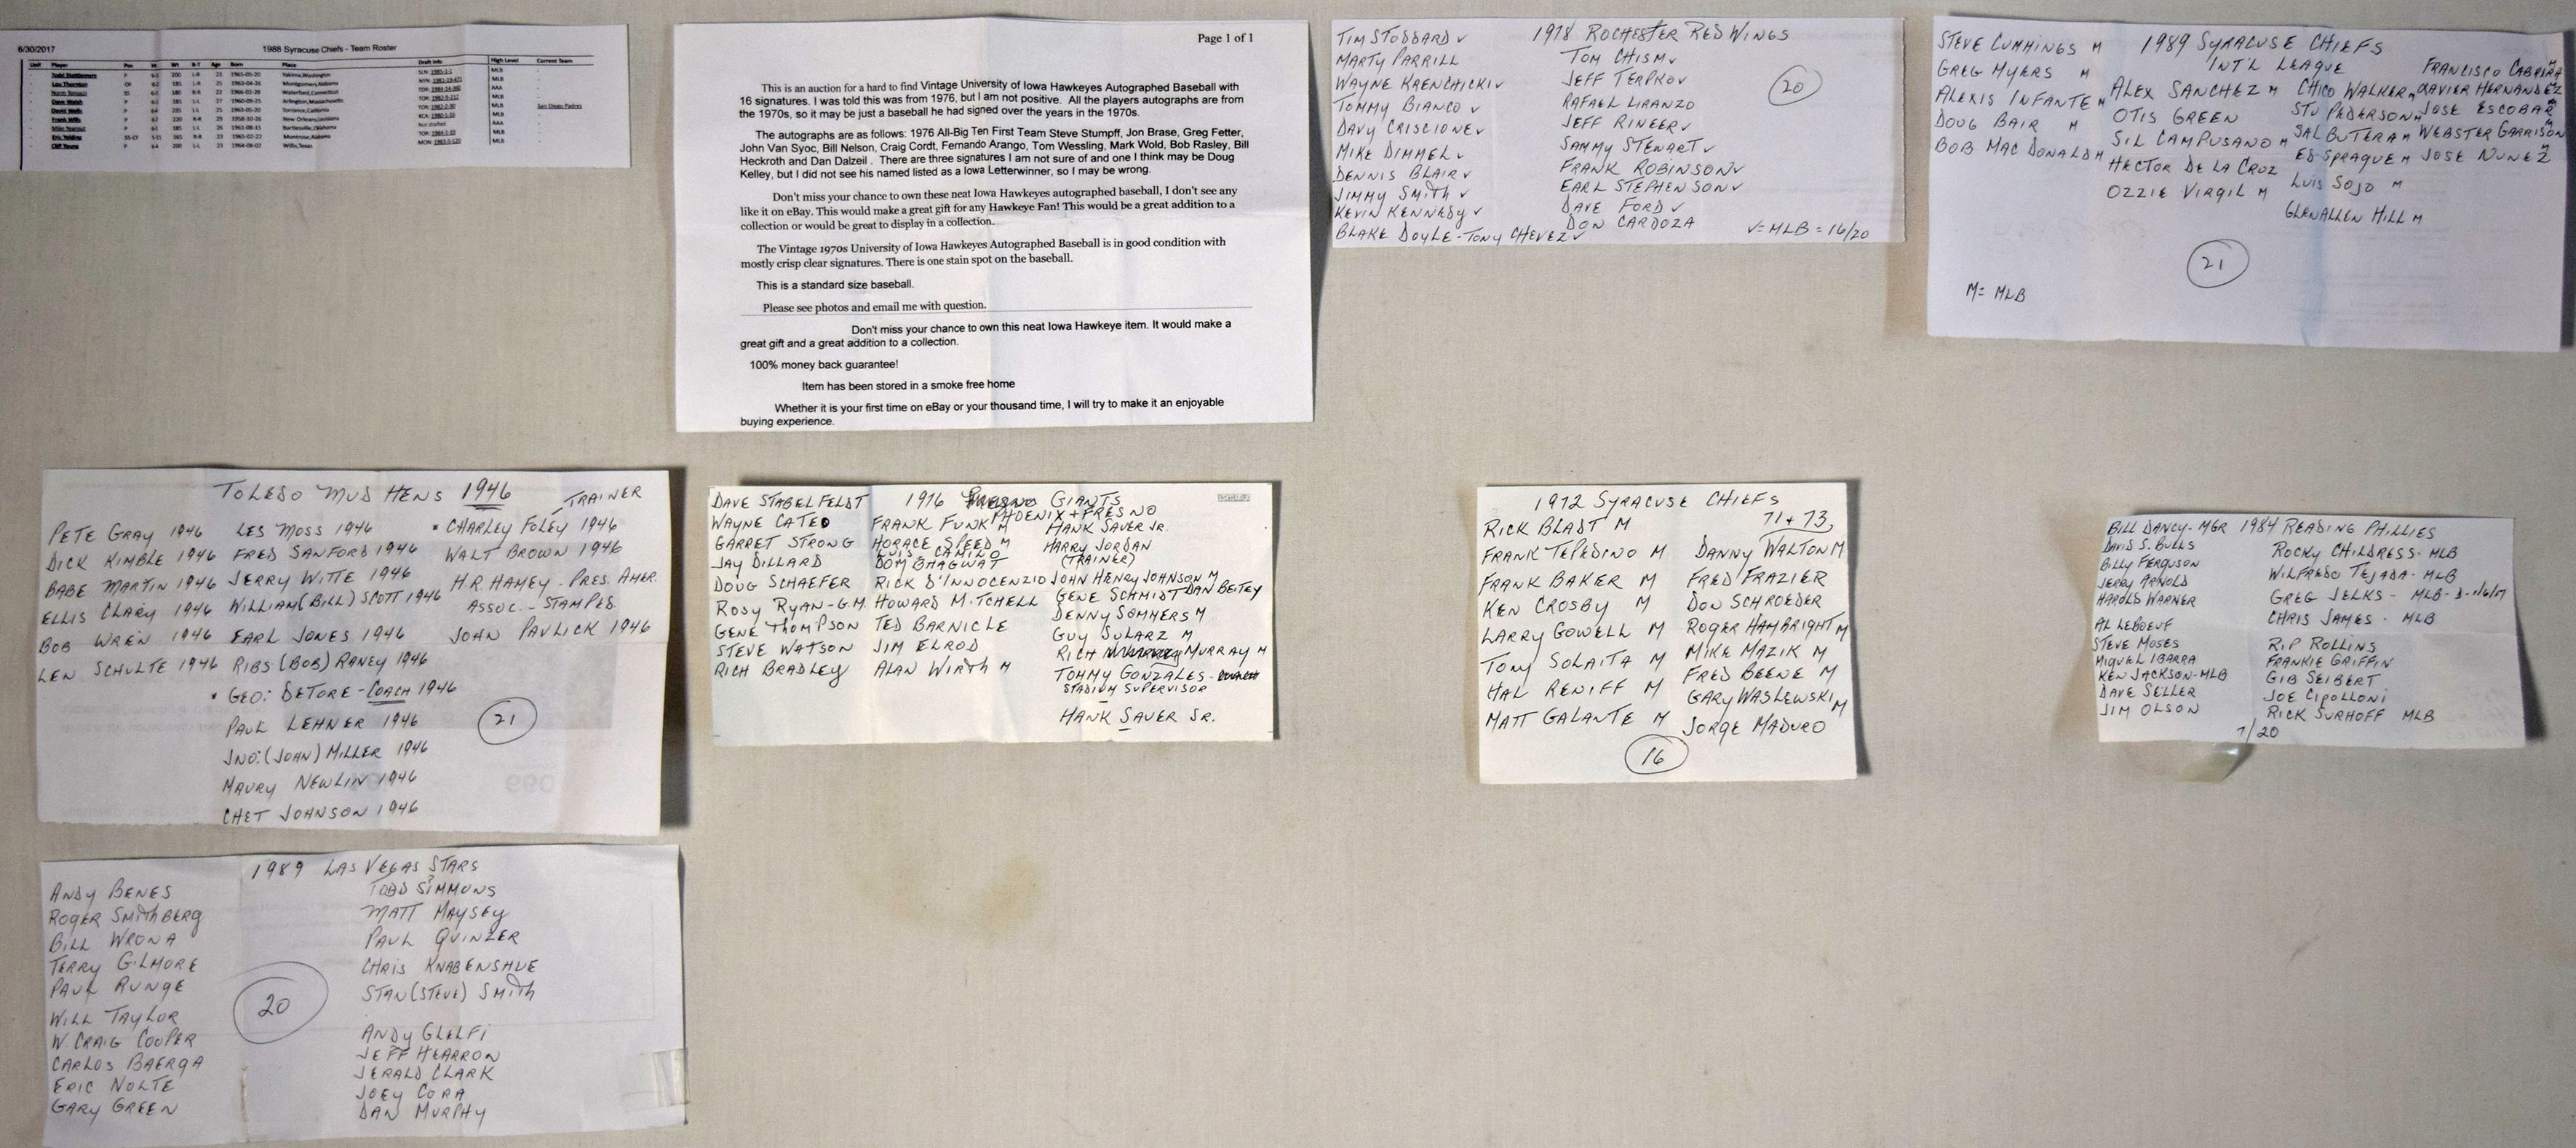 6/30/2017
1988 Syracuse Chiefs - Team Roster
Player Pos Ht Wt B-T Age Born Place Draft Info High Level Current Team
Todd Stottlemyre P 200 L-R 23 1965-05-20 Yakima, Washington MLB
Lou Thornton OF 185 L-R 25 1963-04-26 Montgomery, Alabama MLB
Waterford, Connecticut AAA
Dave Walsh P 185 L-L 27 1960-09-25 Arlington, Massachusetts MLB
David Wells P L-L 25 1963-05-20 Torrance, California MLB San Diego Padres
Frank Wills P R-R 29 1958-10-26 New Orleans, Louisiana MLB
P 26 1961-08-15 Bartlesville, Oklahoma Not drafted AAA
Eric Yelding SS-CF 165 R-R 23 1965-02-22 Montrose, Alabama MLB
Cliff Young P 200 L-L 23 1964-08-02 Willis, Texas MLB
Page 1 of 1
This is an auction for a hard to find Vintage University of Iowa Hawkeyes Autographed Baseball with
16 signatures. I was told this was from 1976, but I am not positive. All the players autographs are from
the 1970s, so it may be just a baseball he had signed over the years in the 1970s.
The autographs are as follows: 1976 All-Big Ten First Team Steve Stumpff, Jon Brase, Greg Fetter,
John Van Syoc, Bill Nelson, Craig Cordt, Fernando Arango, Tom Wessling, Mark Wold, Bob Rasley, Bill
Heckroth and Dan Dalzeil . There are three signatures I am not sure of and one I think may be Doug
Kelley, but I did not see his named listed as a Iowa Letterwinner, so I may be wrong.
Don't miss your chance to own these neat Iowa Hawkeyes autographed baseball, I don't see any
like it on eBay. This would make a great gift for any Hawkeye Fan! This would be a great addition to a
collection or would be great to display in a collection.
The Vintage 1970s University of Iowa Hawkeyes Autographed Baseball is in good condition with
mostly crisp clear signatures. There is one stain spot on the baseball.
This is a standard size baseball.
Please see photos and email me with question.
Don't miss your chance to own this neat Iowa Hawkeye item. It would make a
great gift and a great addition to a collection.
100% money back guarantee!
Item has been stored in a smoke free home
Whether it is your first time on eBay or your thousand time, I will try to make it an enjoyable
buying experience.
1978 ROCHESTER RED WINGS
TIM STODDARD ✓
MARTY PARRILL
WAYNE KRENCHICKI ✓
TOMMY BIANCO ✓
DAVY CRISCIONE ✓
MIKE DIMMEL ✓
DENNIS BLAIR ✓
JIMMY SMITH ✓
KEVIN KENNEDY ✓
BLAKE DOYLE - TONY CHEVEZ ✓
TOM CHISM ✓
JEFF TERPKO ✓
RAFAEL LIRANZO
JEFF RINEER ✓
SAMMY STEWART ✓
FRANK ROBINSON ✓
EARL STEPHENSON ✓
DAVE FORD ✓
DON CARDOZA
20
✓ = MLB = 16/20
1989 SYRACUSE CHIEFS
INT'L LEAGUE
STEVE CUMMINGS M
GREG MYERS M
ALEXIS INFANTE M
DOUG BAIR M
BOB MAC DONALD M
ALEX SANCHEZ M
OTIS GREEN
SIL CAMPUSANO M
HECTOR DE LA CROZ
OZZIE VIRGIL M
CHICO WALKER M
STU PEDERSON M
SAL BUTERA M
ED SPRAGUE M
LUIS SOJO M
GLENALLEN HILL M
FRANCISCO CABRERA M
XAVIER HERNANDEZ M
JOSE ESCOBAR M
WEBSTER GARRISON M
JOSE NUNEZ M
21
M = MLB
TOLEDO MUD HENS 1946
PETE GRAY 1946
DICK KIMBLE 1946
BABE MARTIN 1946
ELLIS CLARY 1946
BOB WREN 1946
LEN SCHULTE 1946
LES MOSS 1946
FRED SANFORD 1946
JERRY WITTE 1946
WILLIAM (BILL) SCOTT 1946
EARL JONES 1946
RIBS (BOB) RANEY 1946
* GEO: DETORE - COACH 1946
PAUL LEHNER 1946
JNO: (JOHN) MILLER 1946
MAURY NEWLIN 1946
CHET JOHNSON 1946
TRAINER
* CHARLEY FOLEY 1946
WALT BROWN 1946
H.R. HAMEY - PRES. AMER.
ASSOC. - STAMPED.
JOHN PAVLICK 1946
21
1976 FRESNO GIANTS
PHOENIX + FRESNO
DAVE STABELFELDT
WAYNE CATEO
GARRET STRONG
JAY DILLARD
DOUG SCHAEFER
ROSY RYAN - G.M.
GENE THOMPSON
STEVE WATSON
RICH BRADLEY
FRANK FUNK M
HORACE SPEED M
LUIS CAMILO
DOM BHAGWAT
RICK D'INNOCENZIO
HOWARD MITCHELL
TED BARNICLE
JIM ELROD
ALAN WIRTH M
HANK SAUER JR.
HARRY JORDAN
(TRAINER)
JOHN HENRY JOHNSON M
GENE SCHMIDT DAN BEITEY
DENNY SOMMERS M
GUY SULARZ M
RICH MURRAY M
TOMMY GONZALES -
STADIUM SUPERVISOR
HANK SAUER SR.
1972 SYRACUSE CHIEFS
71 + 73
RICK BLADT M
FRANK TEPEDINO M
FRANK BAKER M
KEN CROSBY M
LARRY GOWELL M
TONY SOLAITA M
HAL RENIFF M
MATT GALANTE M
DANNY WALTON M
FRED FRAZIER
DON SCHROEDER
ROGER HAMBRIGHT M
MIKE MAZIK M
FRED BEENE M
GARY WASLEWSKI M
JORGE MADURO
16
BILL DANCY - MGR 1984 READING PHILLIES
DAVID S. BULLS
BILLY FERGUSON
JERRY ARNOLD
HAROLD WARNER
AL LEBOEUF
STEVE MOSES
MIGUEL IBARRA
KEN JACKSON - MLB
DAVE SELLER
JIM OLSON
ROCKY CHILDRESS - MLB
WILFREDO TEJADA - MLB
GREG JELKS - MLB - D - 1/6/17
CHRIS JAMES - MLB
RIP ROLLINS
FRANKIE GRIFFIN
GIB SEIBERT
JOE CIPOLLONI
RICK SURHOFF MLB
7/20
1989 LAS VEGAS STARS
ANDY BENES
ROGER SMITHBERG
BILL WRONA
TERRY GILMORE
PAUL RUNGE
WILL TAYLOR
W. CRAIG COOPER
CARLOS BAERGA
ERIC NOLTE
GARY GREEN
20
TODD SIMMONS
MATT MAYSEY
PAUL QUINZER
CHRIS KNABENSHUE
STAN (STEVE) SMITH
ANDY GLELFI
JEFF HEARRON
JERALD CLARK
JOEY CORA
DAN MURPHY